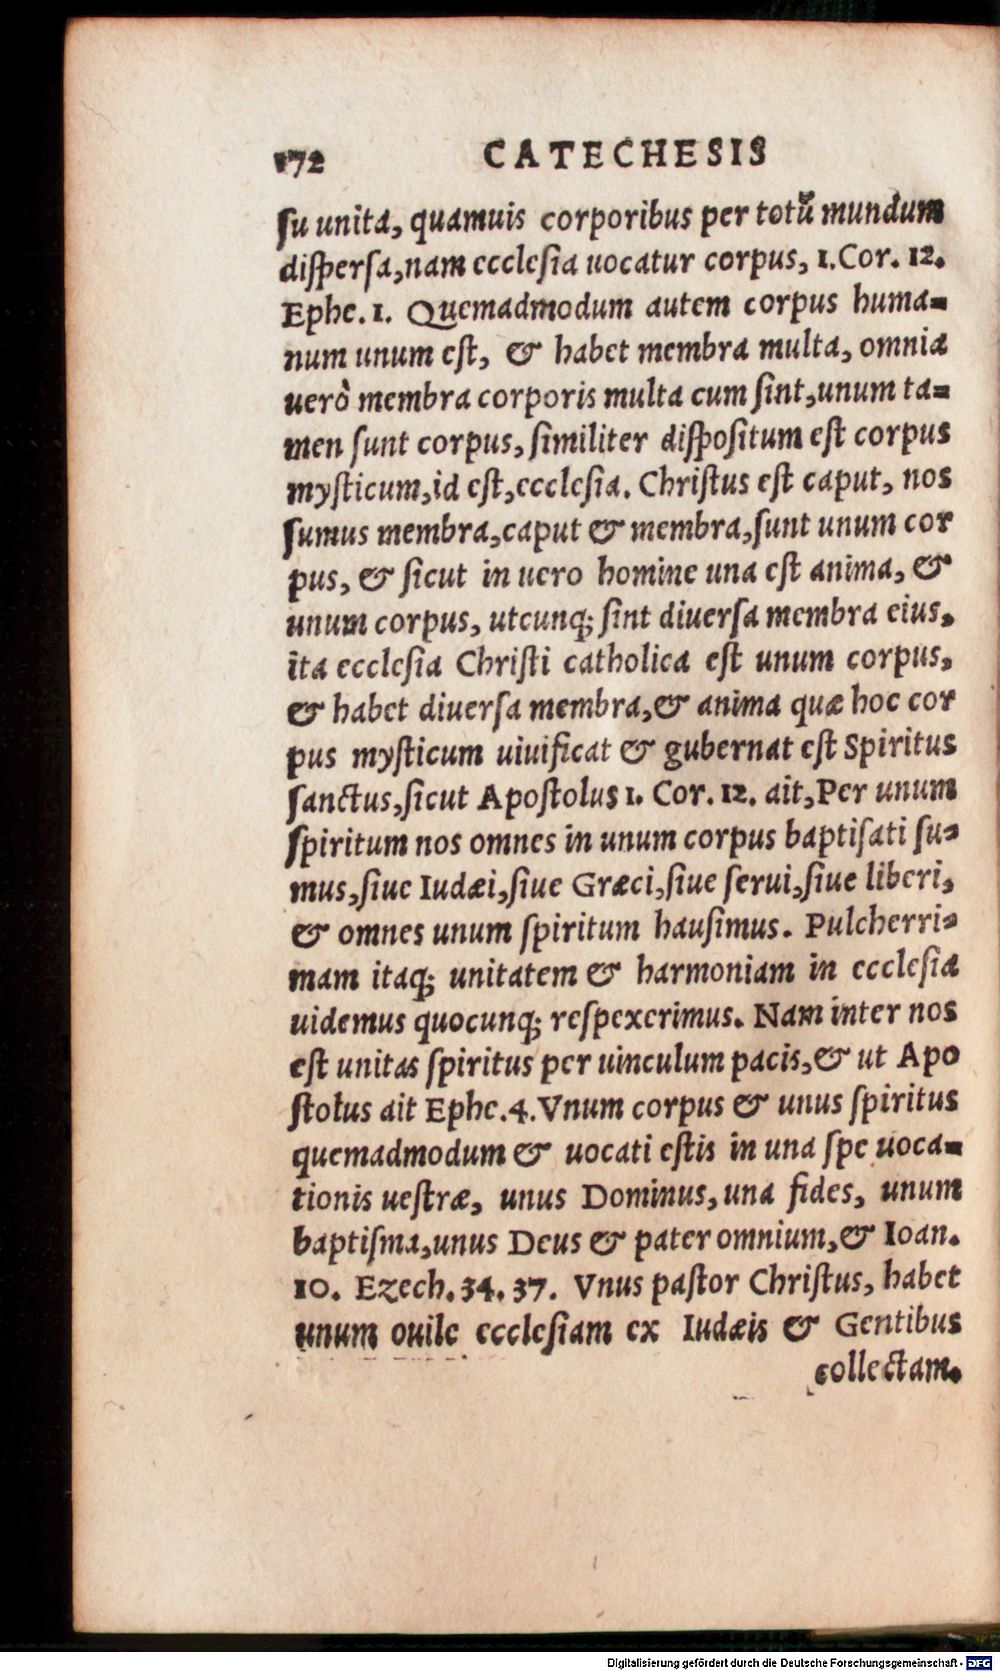 172 CATECHESIS
ſu unita, quamuis corporibus per totũ mundum
diſperſa, nam eccleſia uocatur corpus, 1. Cor. 12.
Ephe. 1. Quemadmodum autem corpus huma-
num unum eſt, & habet membra multa, omnia
uerò membra corporis multa cum ſint, unum ta-
men ſunt corpus, ſimiliter diſpoſitum eſt corpus
myſticum, id eſt, eccleſia. Chriſtus eſt caput, nos
ſumus membra, caput & membra, ſunt unum cor
pus, & ſicut in uero homine una eſt anima, &
unum corpus, utcunq; ſint diuerſa membra eius,
ita eccleſia Chriſti catholica eſt unum corpus,
& habet diuerſa membra, & anima quæ hoc cor
pus myſticum uiuificat & gubernat eſt Spiritus
ſanctus, ſicut Apoſtolus 1. Cor. 12. ait, Per unum
ſpiritum nos omnes in unum corpus baptiſati ſu-
mus, ſiue Iudæi, ſiue Græci, ſiue ſerui, ſiue liberi,
& omnes unum ſpiritum hauſimus. Pulcherri-
mam itaq; unitatem & harmoniam in eccleſia
uidemus quocunq; reſpexerimus. Nam inter nos
eſt unitas ſpiritus per uinculum pacis, & ut Apo
ſtolus ait Ephe. 4. Vnum corpus & unus ſpiritus
quemadmodum & uocati eſtis in una ſpe uoca-
tionis ueſtræ, unus Dominus, una fides, unum
baptiſma, unus Deus & pater omnium, & Ioan.
10. Ezech. 34. 37. Vnus paſtor Chriſtus, habet
unum ouile eccleſiam ex Iudæis & Gentibus
collectam.
Digitalisierung gefördert durch die Deutsche Forschungsgemeinschaft - DFG